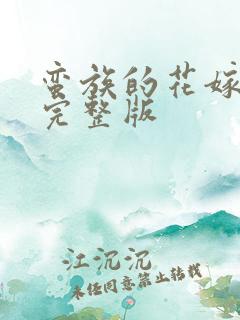 蛮族的花嫁
完整版
江沉沉
未经同意禁止转载